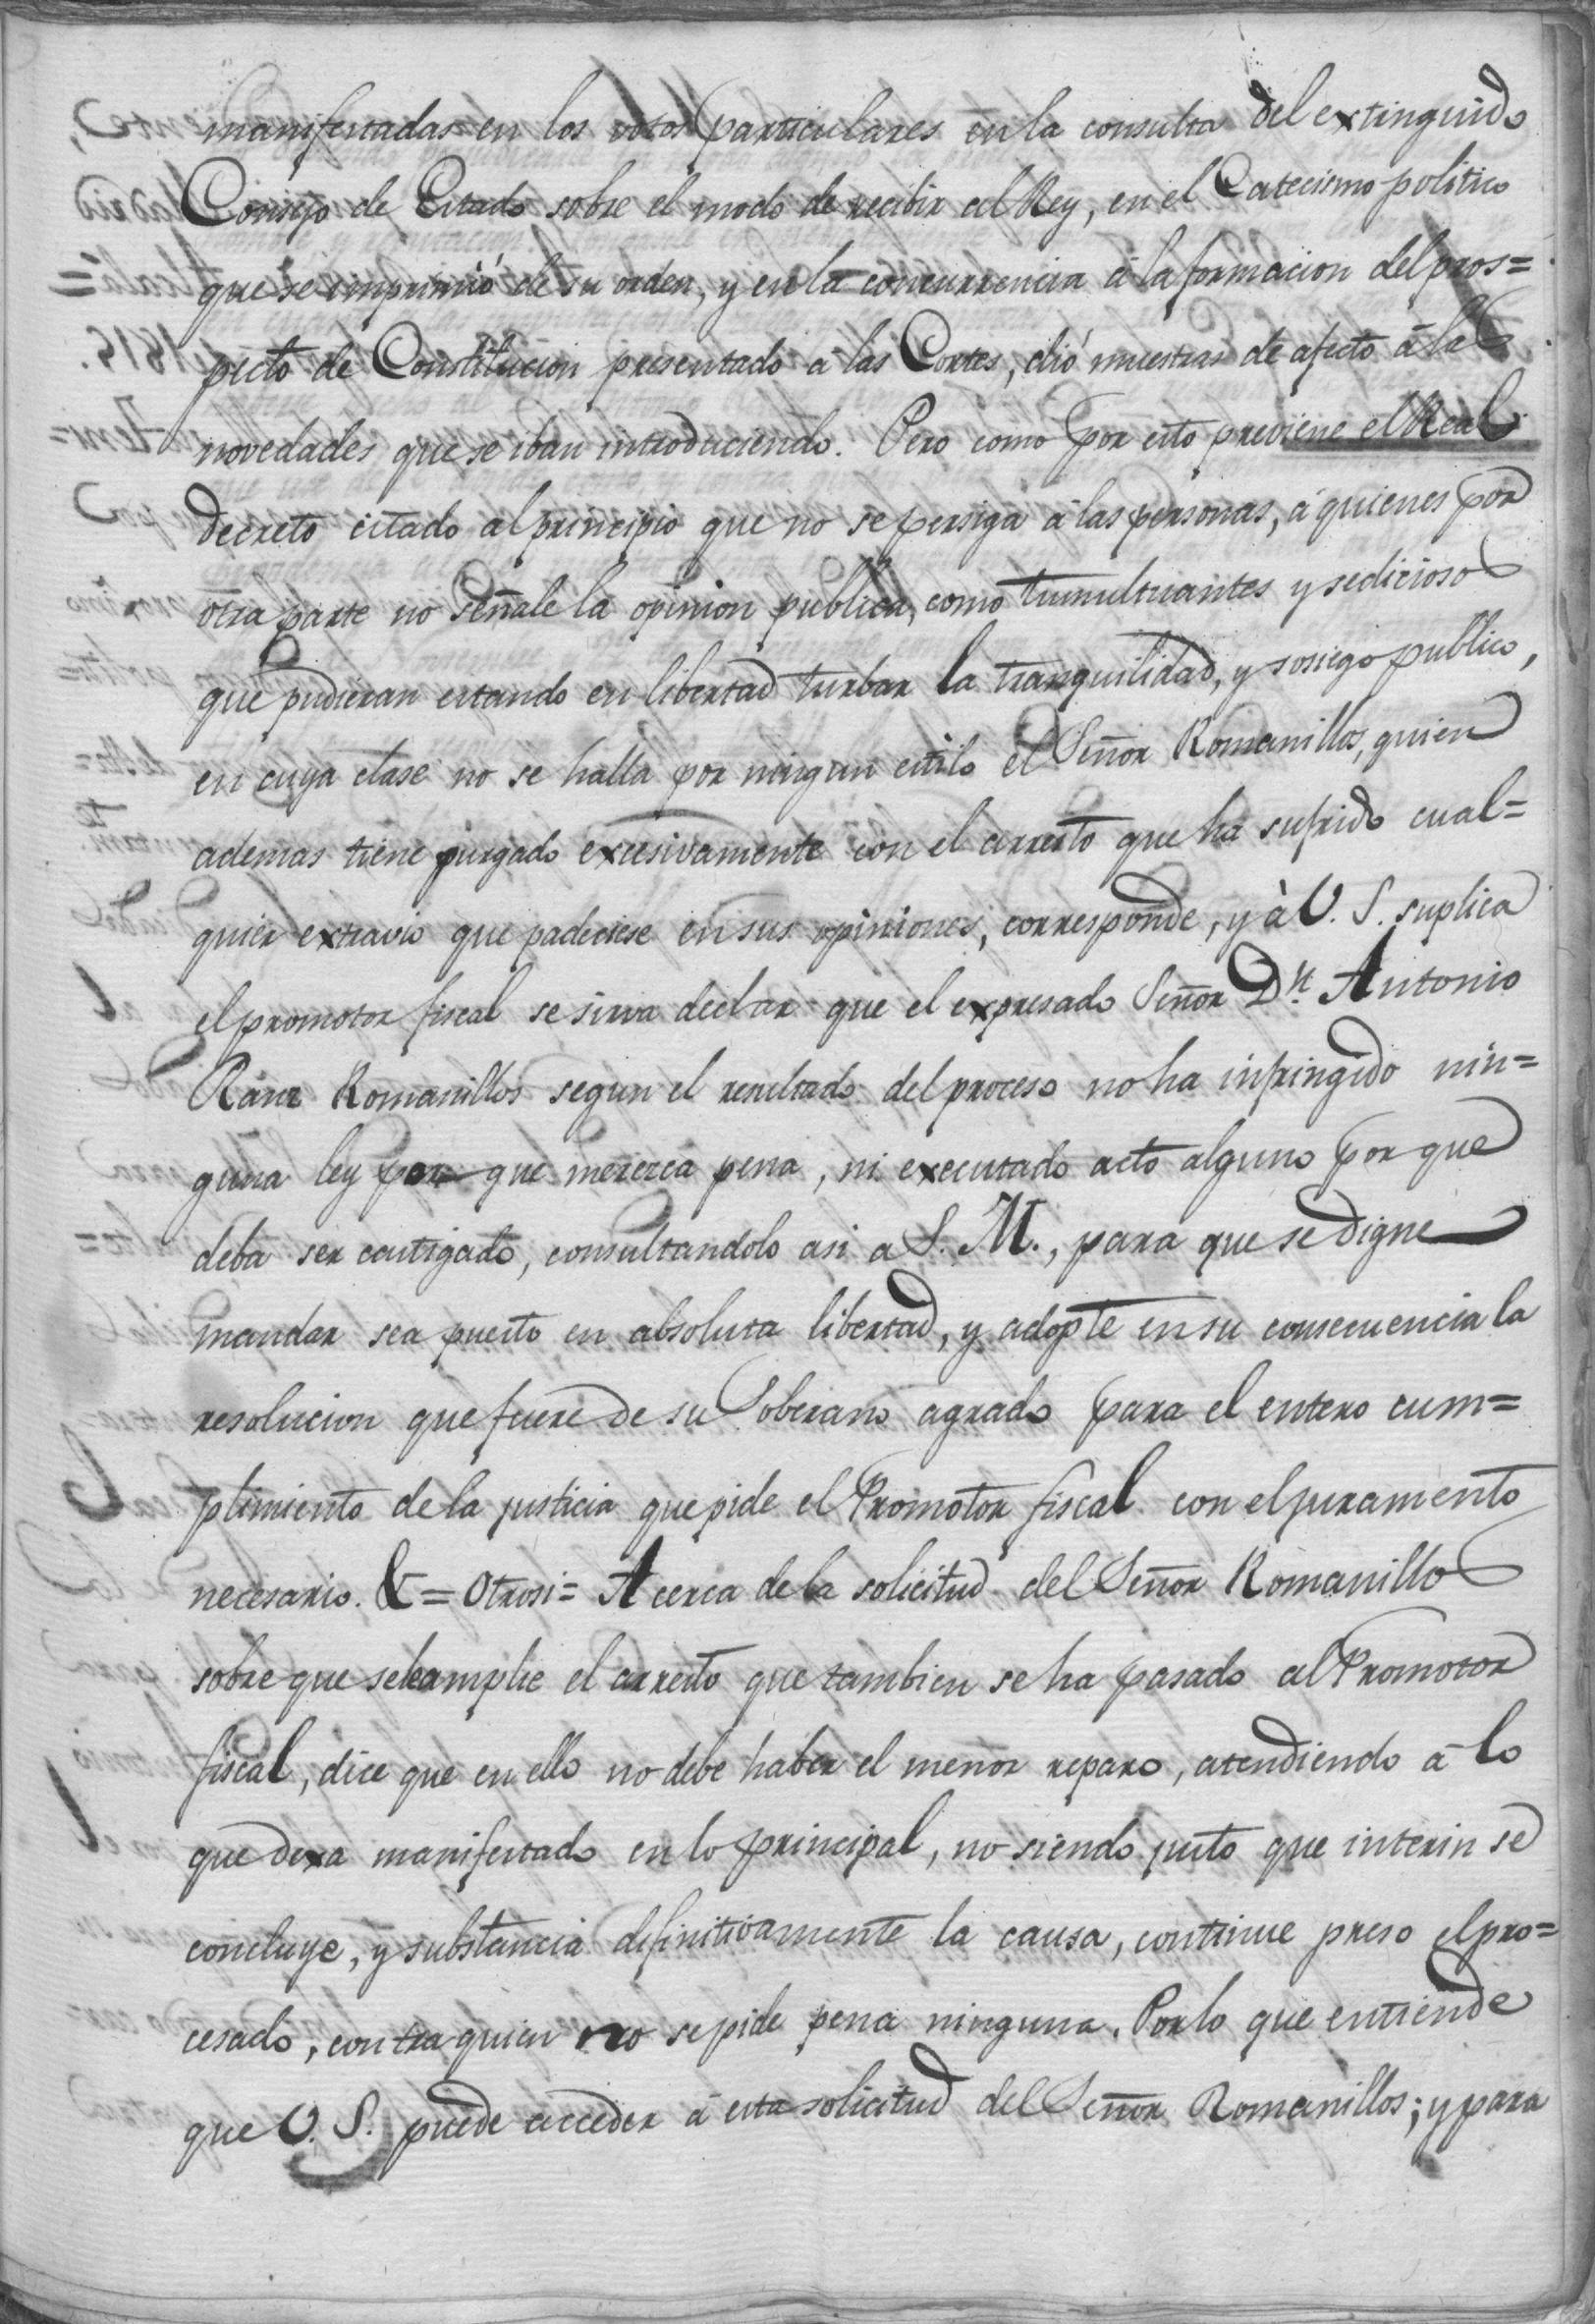 manifestadas en los votos particulares en la consulta del extinguido
Consejo de Estado sobre el modo de recibir al Rey, en el Catecismo politico
que se imprimió de su orden, y en la concurrencia á la formacion del pros=
pecto de Constitucion presentado á las Cortes, dió muestras de afecto á las
novedades que se iban introduciendo. Pero como por esto previene el Real
decreto citado al principio que no se persiga á las personas, á quienes por
otra parte no señale la opinion publica, como tumultuantes y sediciosos
que pudieran estando en libertad turbar la tranquilidad, y sosiego publico,
en cuya clase no se halla por ningun estilo el Señor Romanillos, quien
ademas tiene purgado excesivamente con el arresto que ha sufrido cual=
quier extravio que padeciese en sus opiniones, corresponde, y à V. S. suplica
el promotor fiscal se sirva declar que el expresado Señor Dn. Antonio
Ránz Romanillos segun el resultado del proceso no ha infringido nin=
guna ley por que merezca pena, ni executado acto alguno por que
deba ser castigado, consultandolo asi a S. M., para que se digne
mandar sea puesto en absoluta libertad, y adopte en su consecuencia la
resolucion que fuere de su Soberano agrado para el entero cum=
plimiento de la justicia que pide el Promotor fiscal con el juramento
necesario. &= Otrosi= Acerca de la solicitud del Señor Romanillos
sobre que se le amplie el arresto que tambien se ha pasado al Promotor
fiscal, dice que en ello no debe haber el menor reparo, atendiendo á lo
que dexa manifestado en lo principal, no siendo justo que interin se
concluye, y substancia definitivamente la causa, continue preso el pro=
cesado, contra quien no se pide pena ninguna. Por lo que entiende
que V. S. puede acceder á esta solicitud del Señor Romanillos; y para